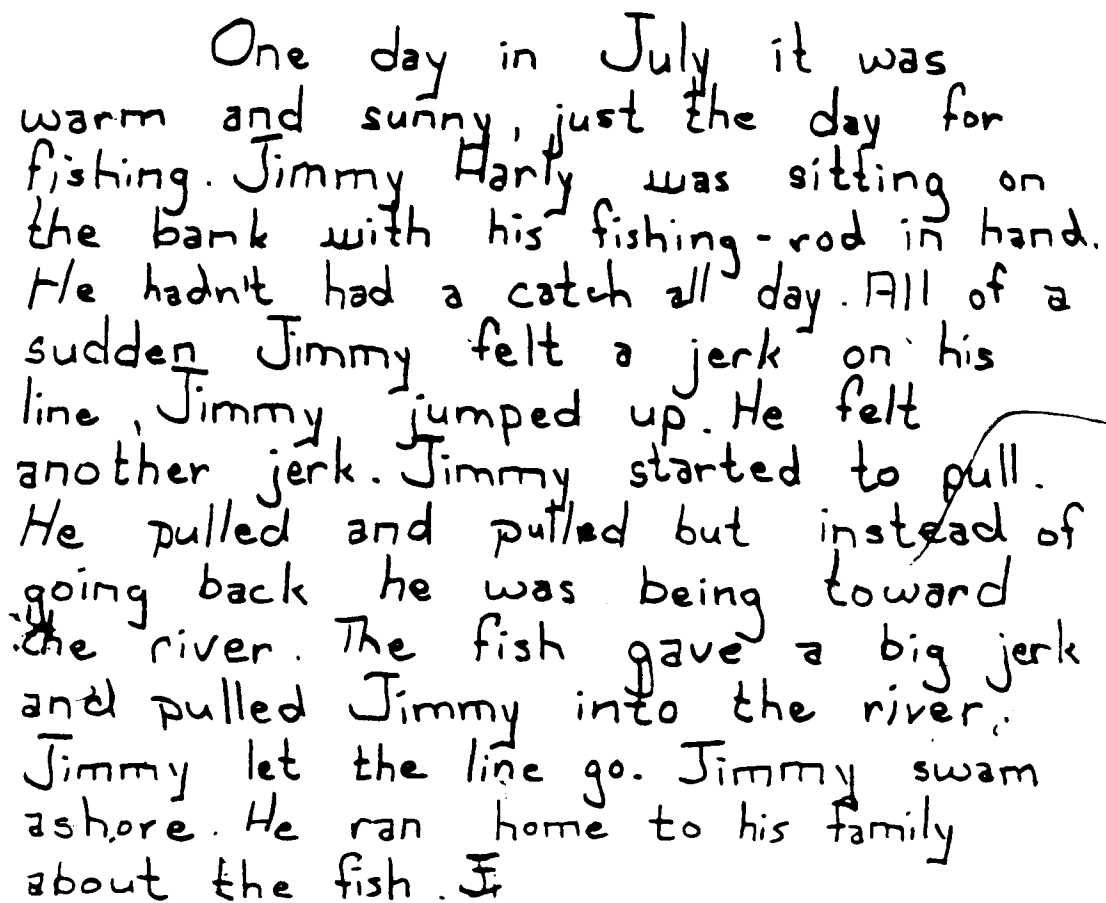 One day in July it was
warm and sunny, just the day for
fishing. Jimmy Harty was sitting on
the bank with his fishing-rod in hand.
He hadn't had a catch all day. All of a
sudden Jimmy felt a jerk on his
line, Jimmy jumped up. He felt
another jerk. Jimmy started to pull.
He pulled and pulled but instead of
going back he was being toward
the river. The fish gave a big jerk
and pulled Jimmy into the river.
Jimmy let the line go. Jimmy swam
ashore. He ran home to his family
about the fish.